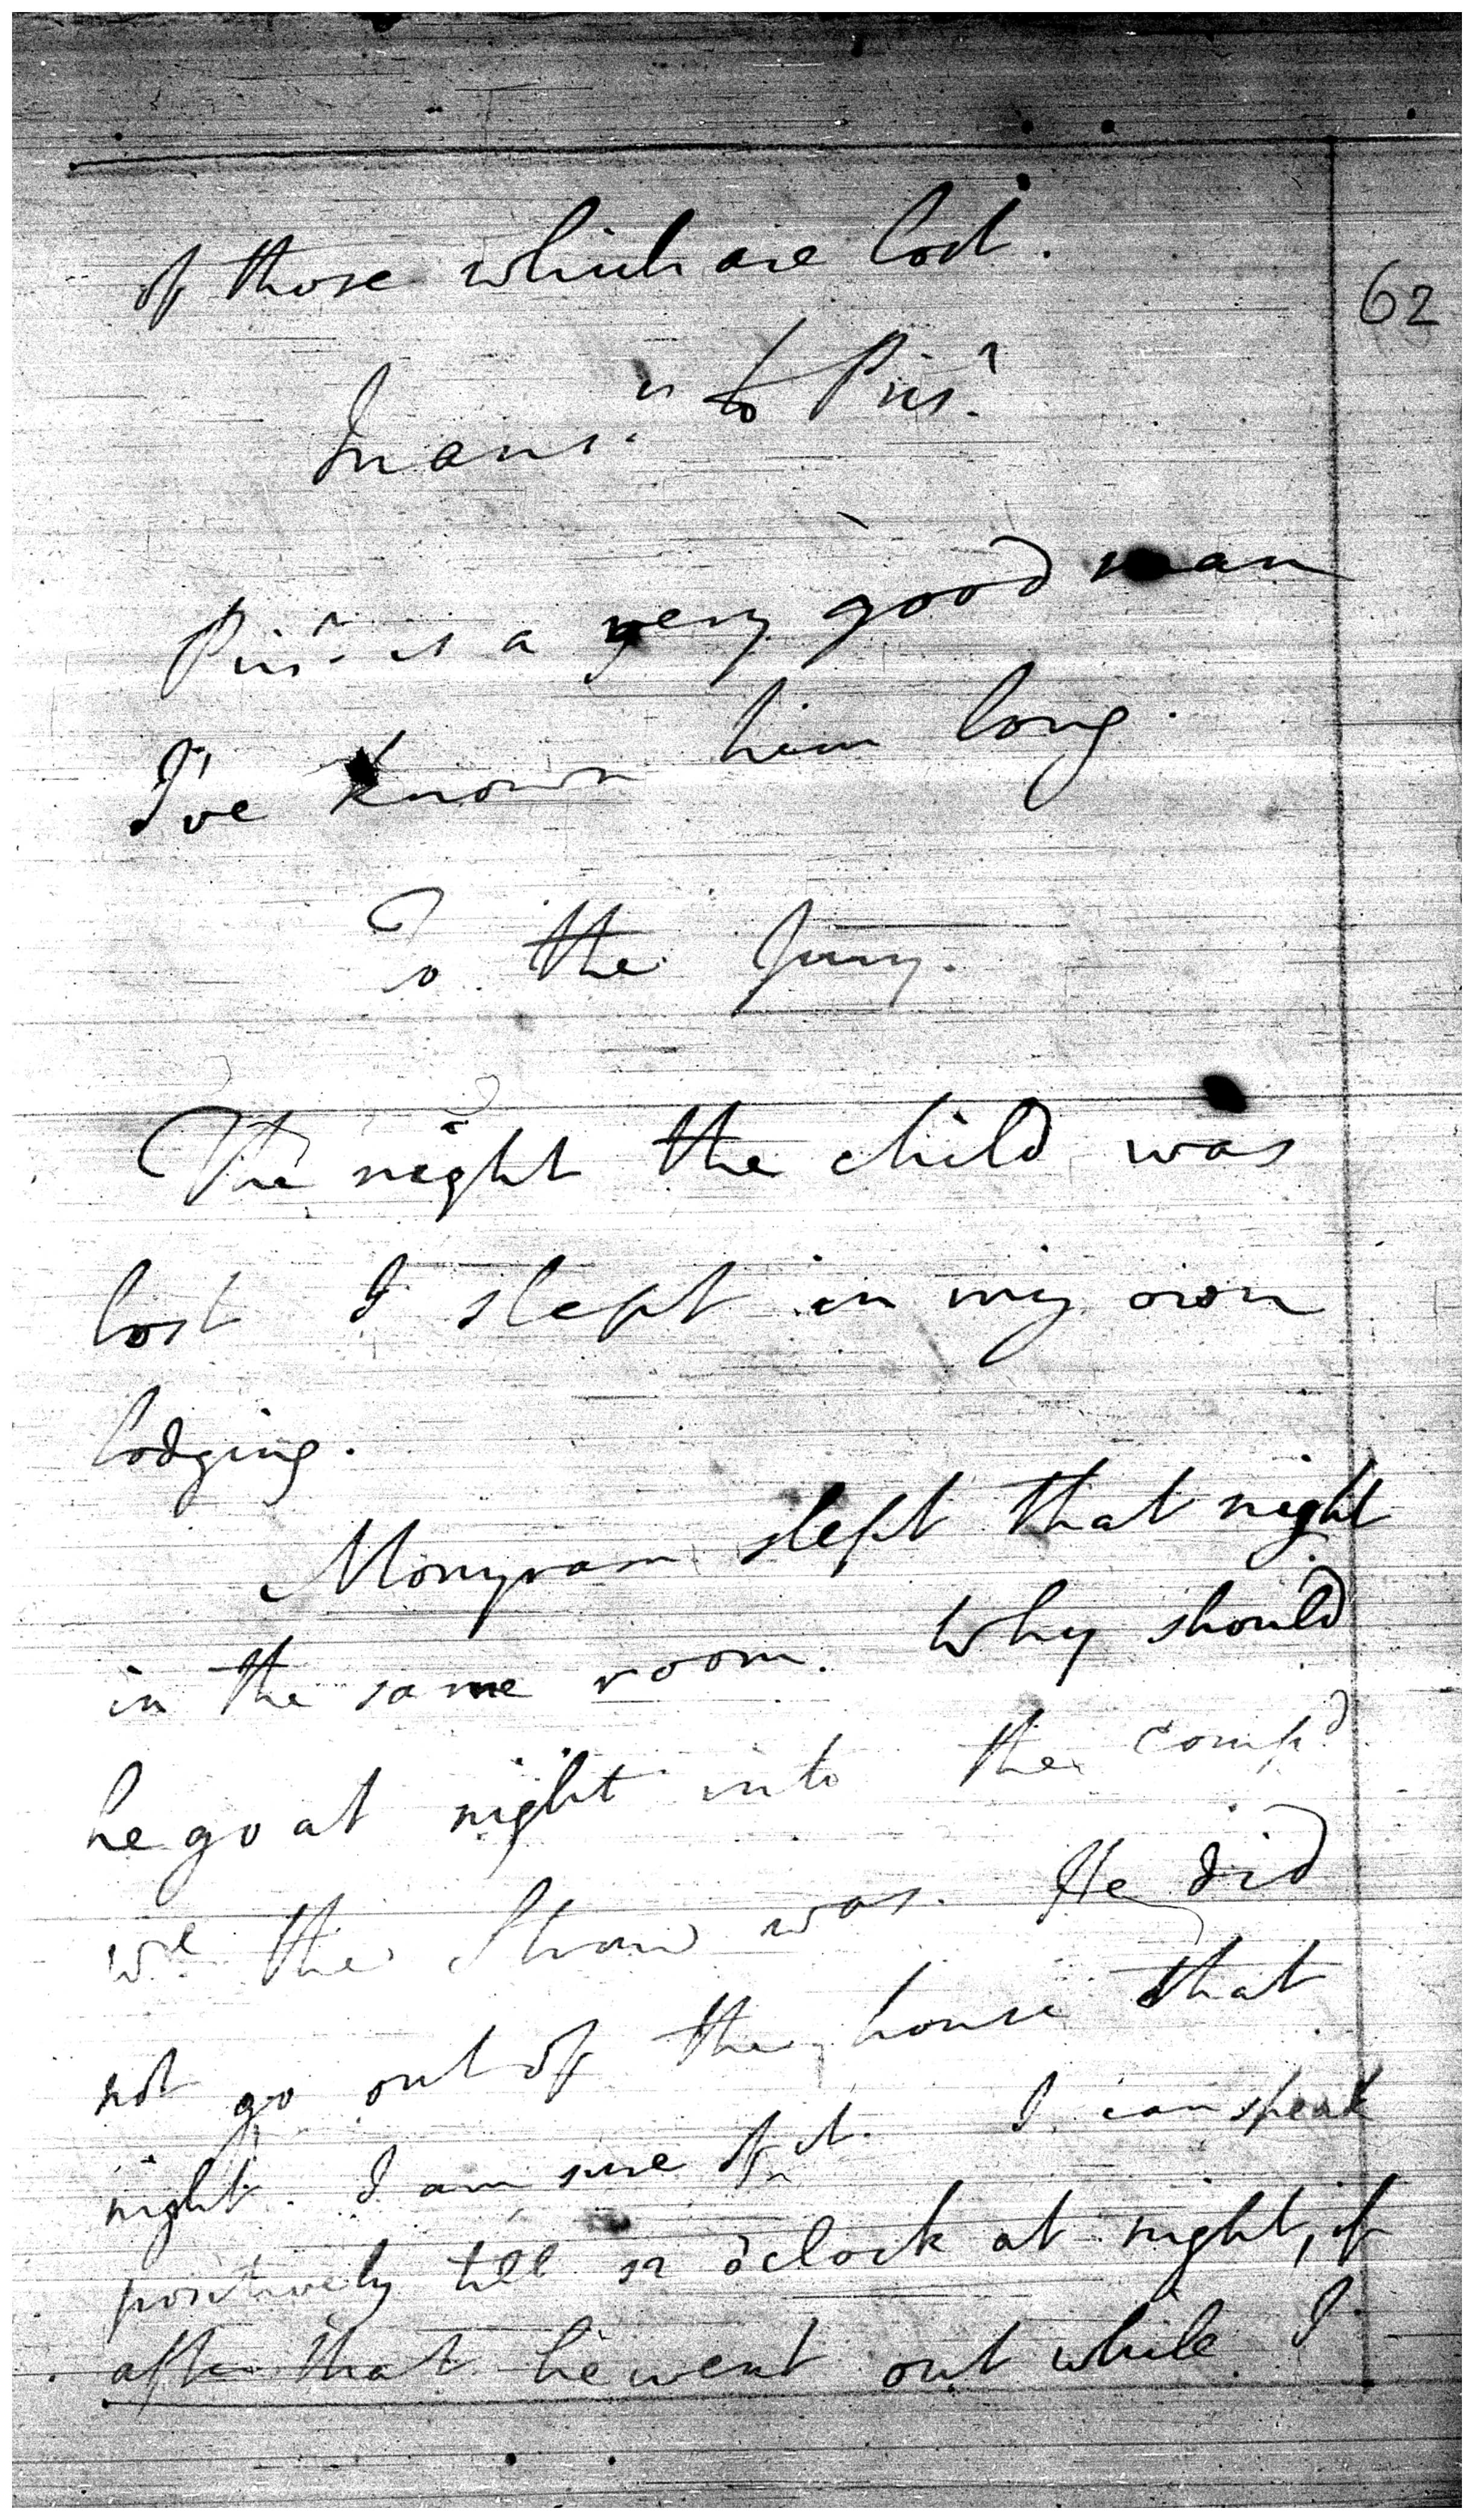 of those which are lost.
62
In ans.r to Pris.r
Pris.r is a very good man
I've known him long.
To the Jury.
The night the child was
lost I slept in my own
lodging.
Monyram slept that night
in the same room. Why should
he go at night into the comp.d
w.e the Straw was. He did
not go out of the house that
night. I am sure of it. I can speak
positively till 12 o'clock at night, if
after that he went out while I